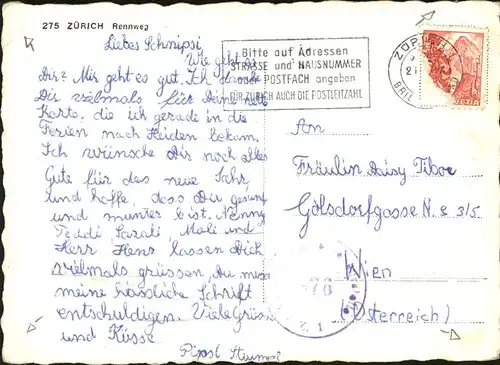 275 ZÜRICH Rennweg
Liebes Schnipsi
Wie geht es
Dir? Mir geht es gut. Ich danke
Dir vielmals für Deine nette
Karte, die ich gerade in die
Ferien nach Heiden bekam.
Ich wünsche Dir noch alles
Gute für das neue Jahr,
und hoffe, dass Du gesund
und munter bist. Nenny
Teddi Sarali, Mali und
Herr Hens lassen Dich
vielmals grüssen. Du musst
meine hässliche Schrift
entschuldigen. Viele Grüsse
und Küsse
Bitte auf Adressen
STRASSE und HAUSNUMMER
POSTFACH angeben
FÜR ZÜRICH AUCH DIE POSTLEITZAHL
An
Fräulein Daisy Tiboe
Gölsdorfgasse N. 3/5
Wien
(Österreich)